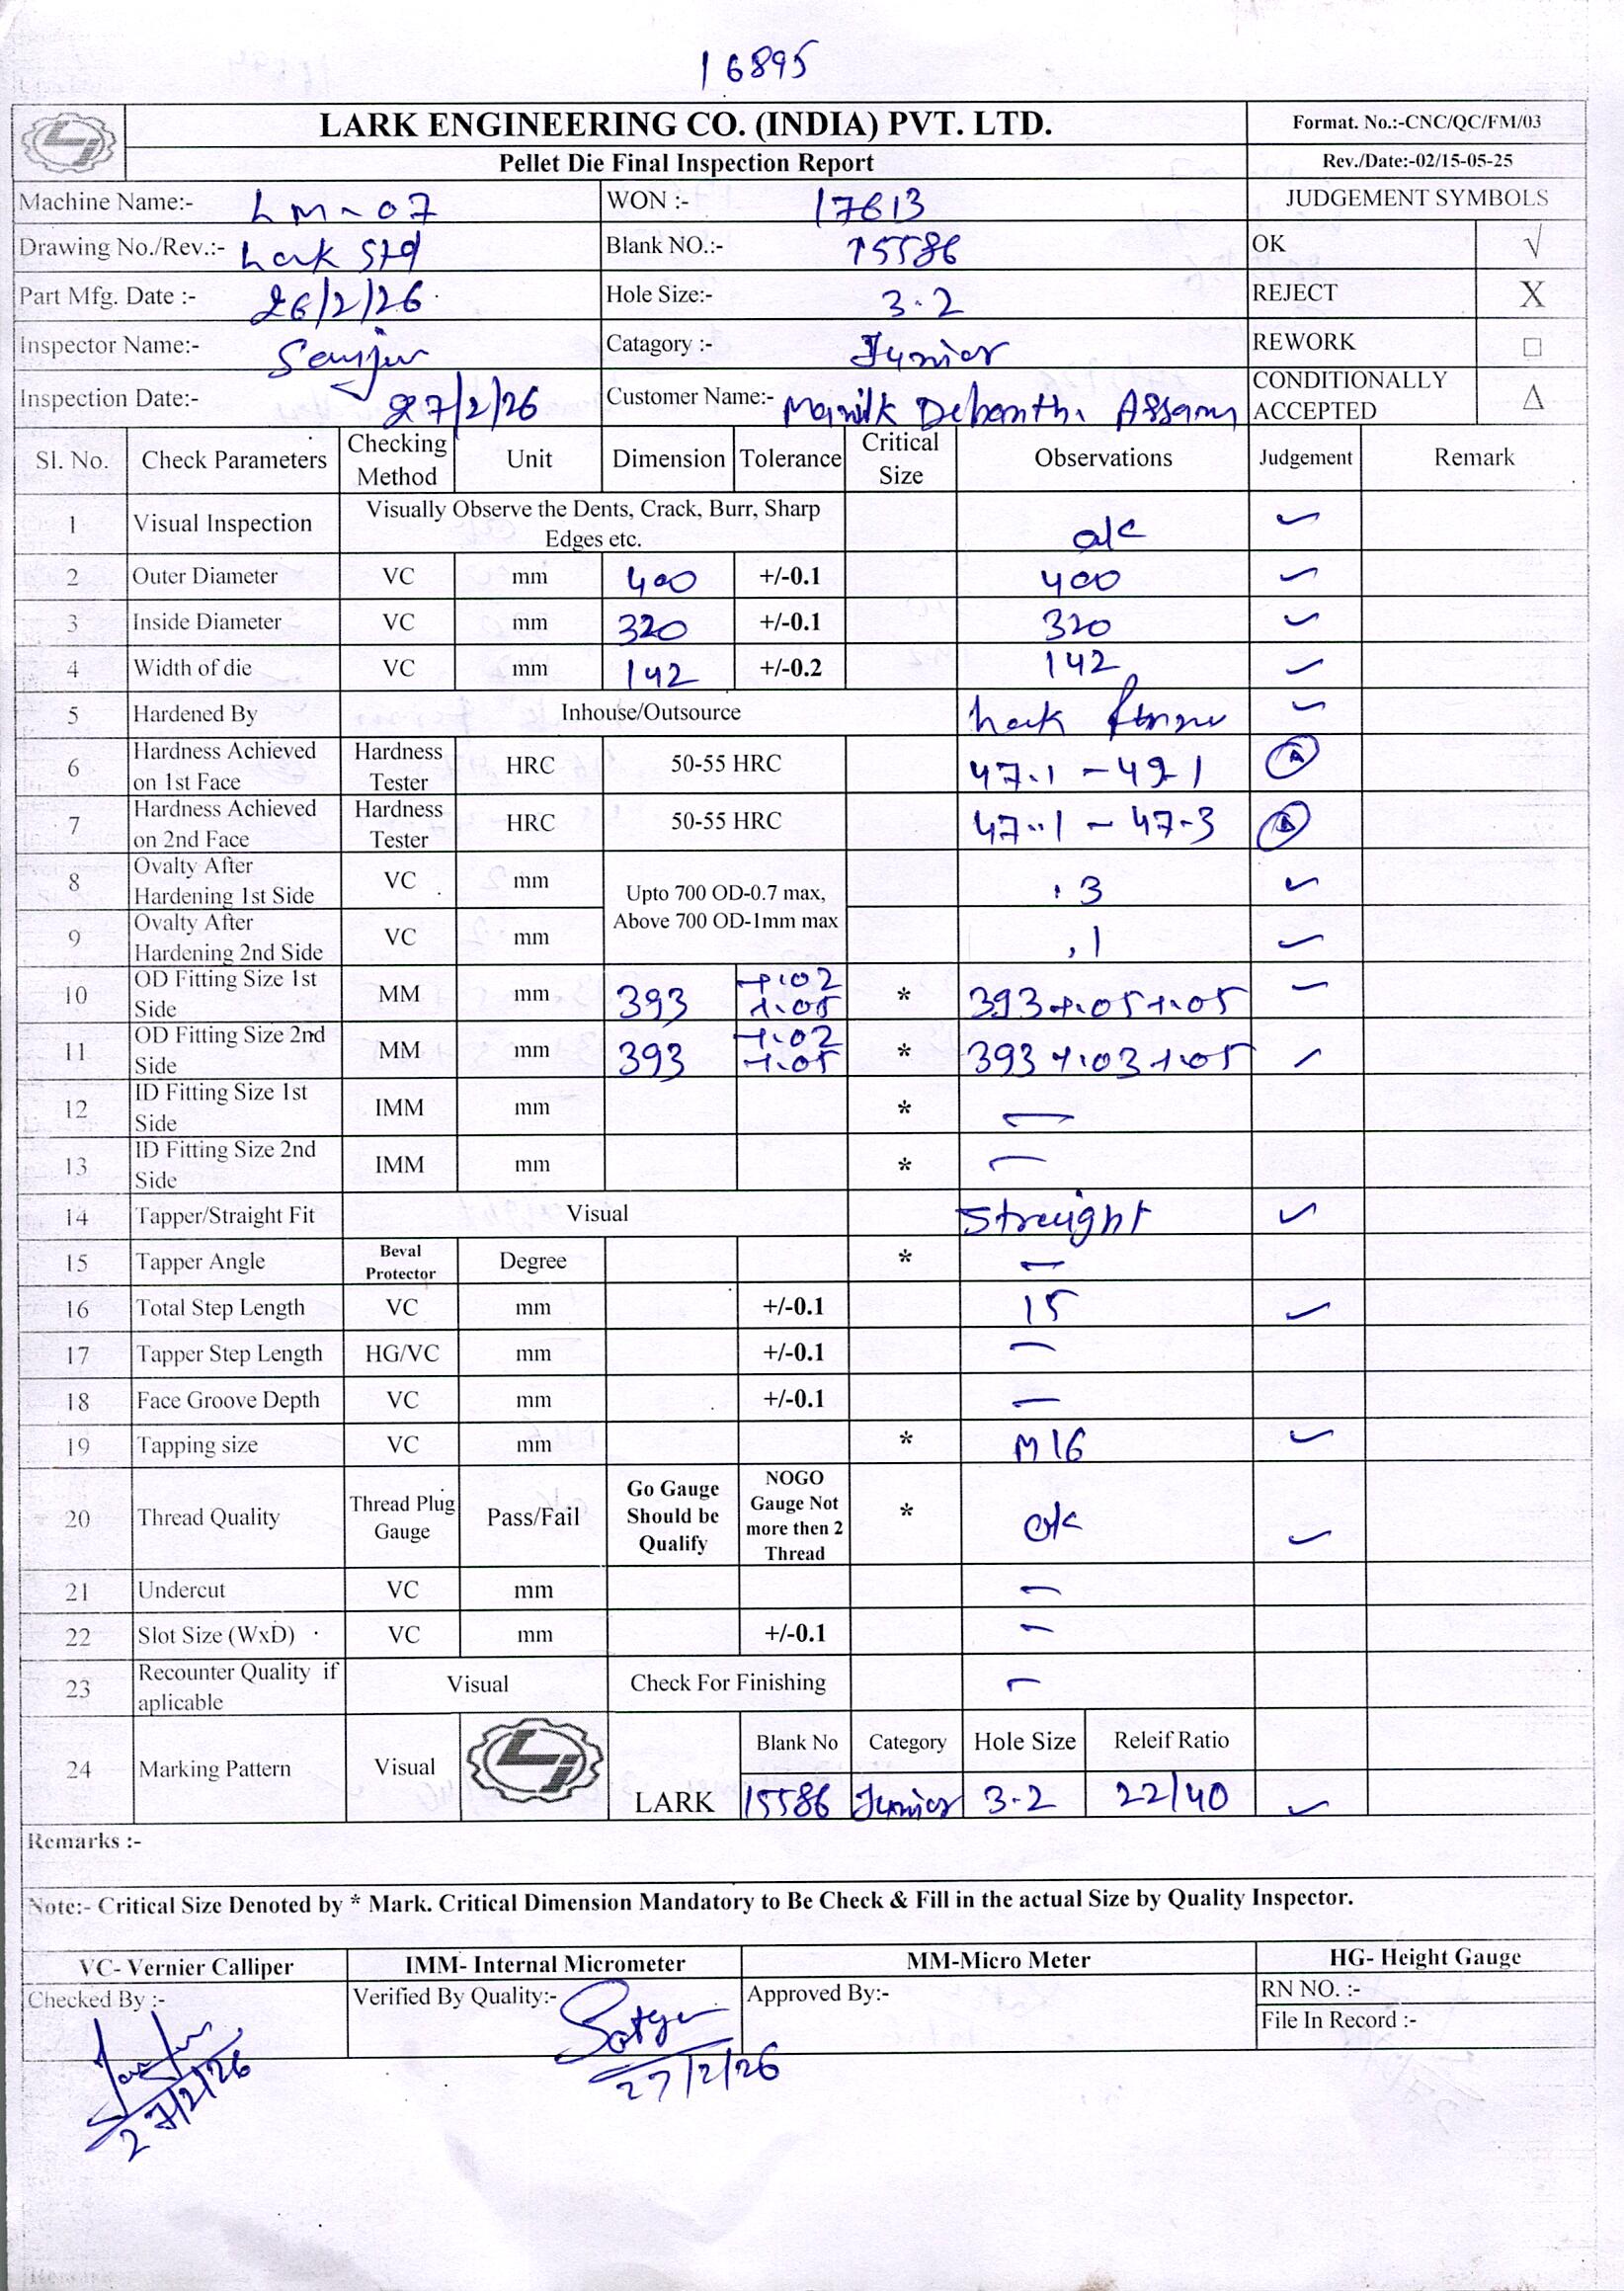 16895
LARK ENGINEERING CO. (INDIA) PVT. LTD. Format. No.:-CNC/QC/FM/03
Pellet Die Final Inspection Report Rev./Date:-02/15-05-25
Machine Name:- LM-07 WON :- 17613 JUDGEMENT SYMBOLS
Drawing No./Rev.:- Lark Std Blank NO.:- 15586 OK √
Part Mfg. Date :- 26/2/26 Hole Size:- 3.2 REJECT X
Inspector Name:- Catagory :- Junior REWORK □
Inspection Date:- 27/2/26 Customer Name:- Manik Debanth. Assam CONDITIONALLY ACCEPTED △
Sl. No. Check Parameters Checking Method Unit Dimension Tolerance Critical Size Observations Judgement Remark
1 Visual Inspection Visually Observe the Dents, Crack, Burr, Sharp Edges etc. ok ✓
2 Outer Diameter VC mm 400 +/-0.1 400 ✓
3 Inside Diameter VC mm 320 +/-0.1 320 ✓
4 Width of die VC mm 142 +/-0.2 142 ✓
5 Hardened By Inhouse/Outsource Lark ✓
6 Hardness Achieved on 1st Face Hardness Tester HRC 50-55 HRC 47.1 - 49.1 △
7 Hardness Achieved on 2nd Face Hardness Tester HRC 50-55 HRC 47.1 - 47.3 △
8 Ovalty After Hardening 1st Side VC mm Upto 700 OD-0.7 max, Above 700 OD-1mm max .3 ✓
9 Ovalty After Hardening 2nd Side VC mm .1 ✓
10 OD Fitting Size 1st Side MM mm 393 +.02 +.05 * 393+.05+.05 ✓
11 OD Fitting Size 2nd Side MM mm 393 +.02 +.05 * 393+.03+.05 ✓
12 ID Fitting Size 1st Side IMM mm * —
13 ID Fitting Size 2nd Side IMM mm * —
14 Tapper/Straight Fit Visual Straight ✓
15 Tapper Angle Beval Protector Degree * —
16 Total Step Length VC mm +/-0.1 15 ✓
17 Tapper Step Length HG/VC mm +/-0.1 —
18 Face Groove Depth VC mm +/-0.1 —
19 Tapping size VC mm * M16 ✓
20 Thread Quality Thread Plug Gauge Pass/Fail Go Gauge Should be Qualify NOGO Gauge Not more then 2 Thread * ok ✓
21 Undercut VC mm —
22 Slot Size (WxD) VC mm +/-0.1 —
23 Recounter Quality if aplicable Visual Check For Finishing —
24 Marking Pattern Visual LARK Blank No Category Hole Size Releif Ratio
15586 Junior 3.2 22/40 ✓
Remarks :-
Note:- Critical Size Denoted by * Mark. Critical Dimension Mandatory to Be Check & Fill in the actual Size by Quality Inspector.
VC- Vernier Calliper IMM- Internal Micrometer MM-Micro Meter HG- Height Gauge
Checked By :- Verified By Quality:- Approved By:- RN NO. :-
File In Record :-
27/2/26 27/2/26